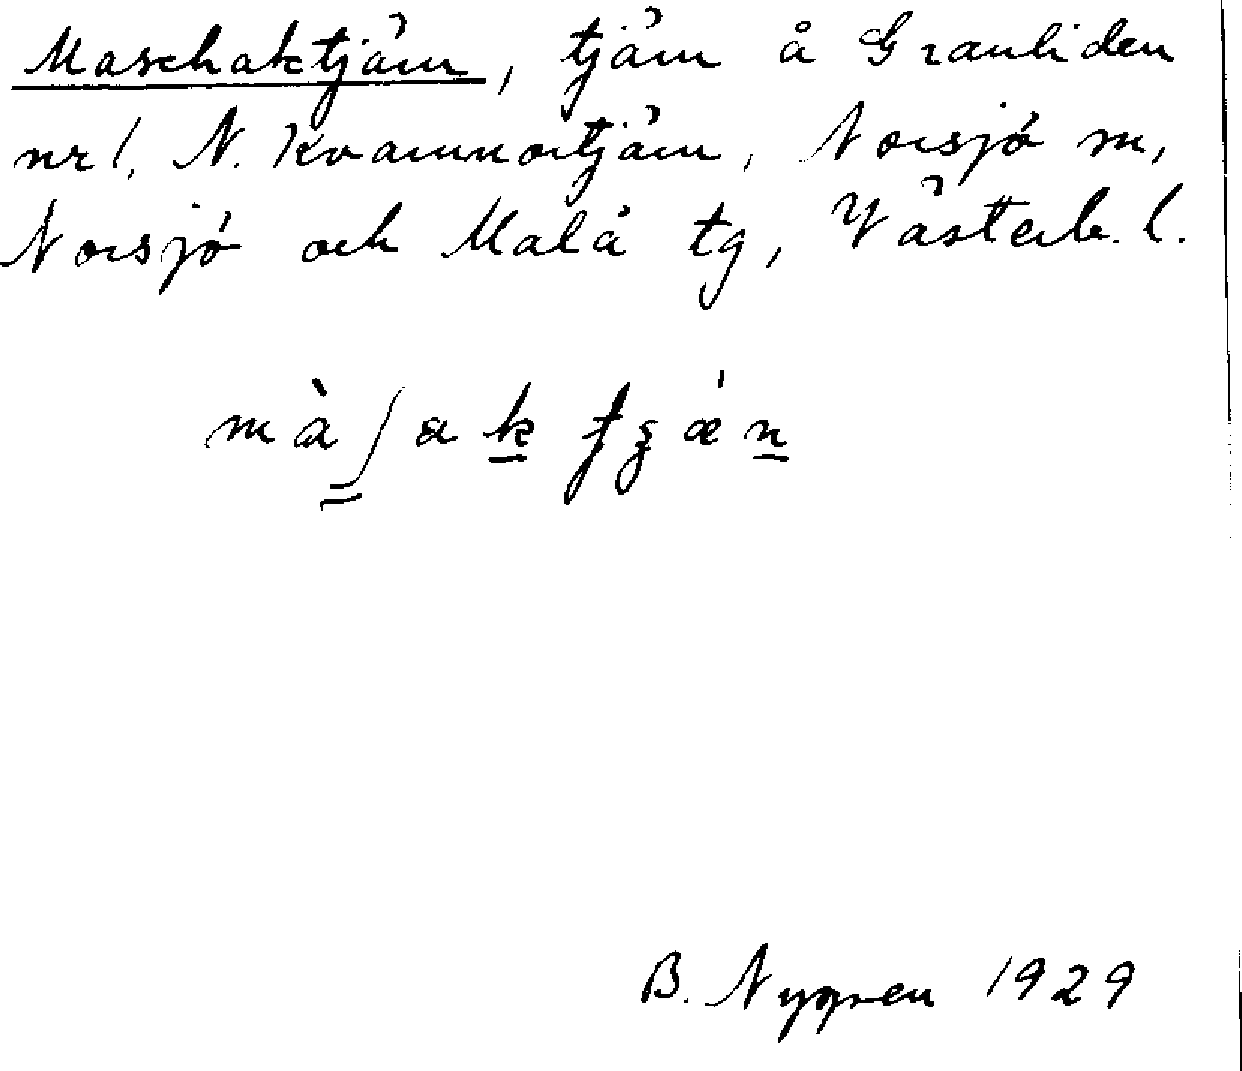 Maschaktjärn, tjärn å Granliden
nr 1. N. Kvarnnortjärn, Norsjö sn,
Norsjö och Malå tg, Västerb. l.
B. Nygren 1929